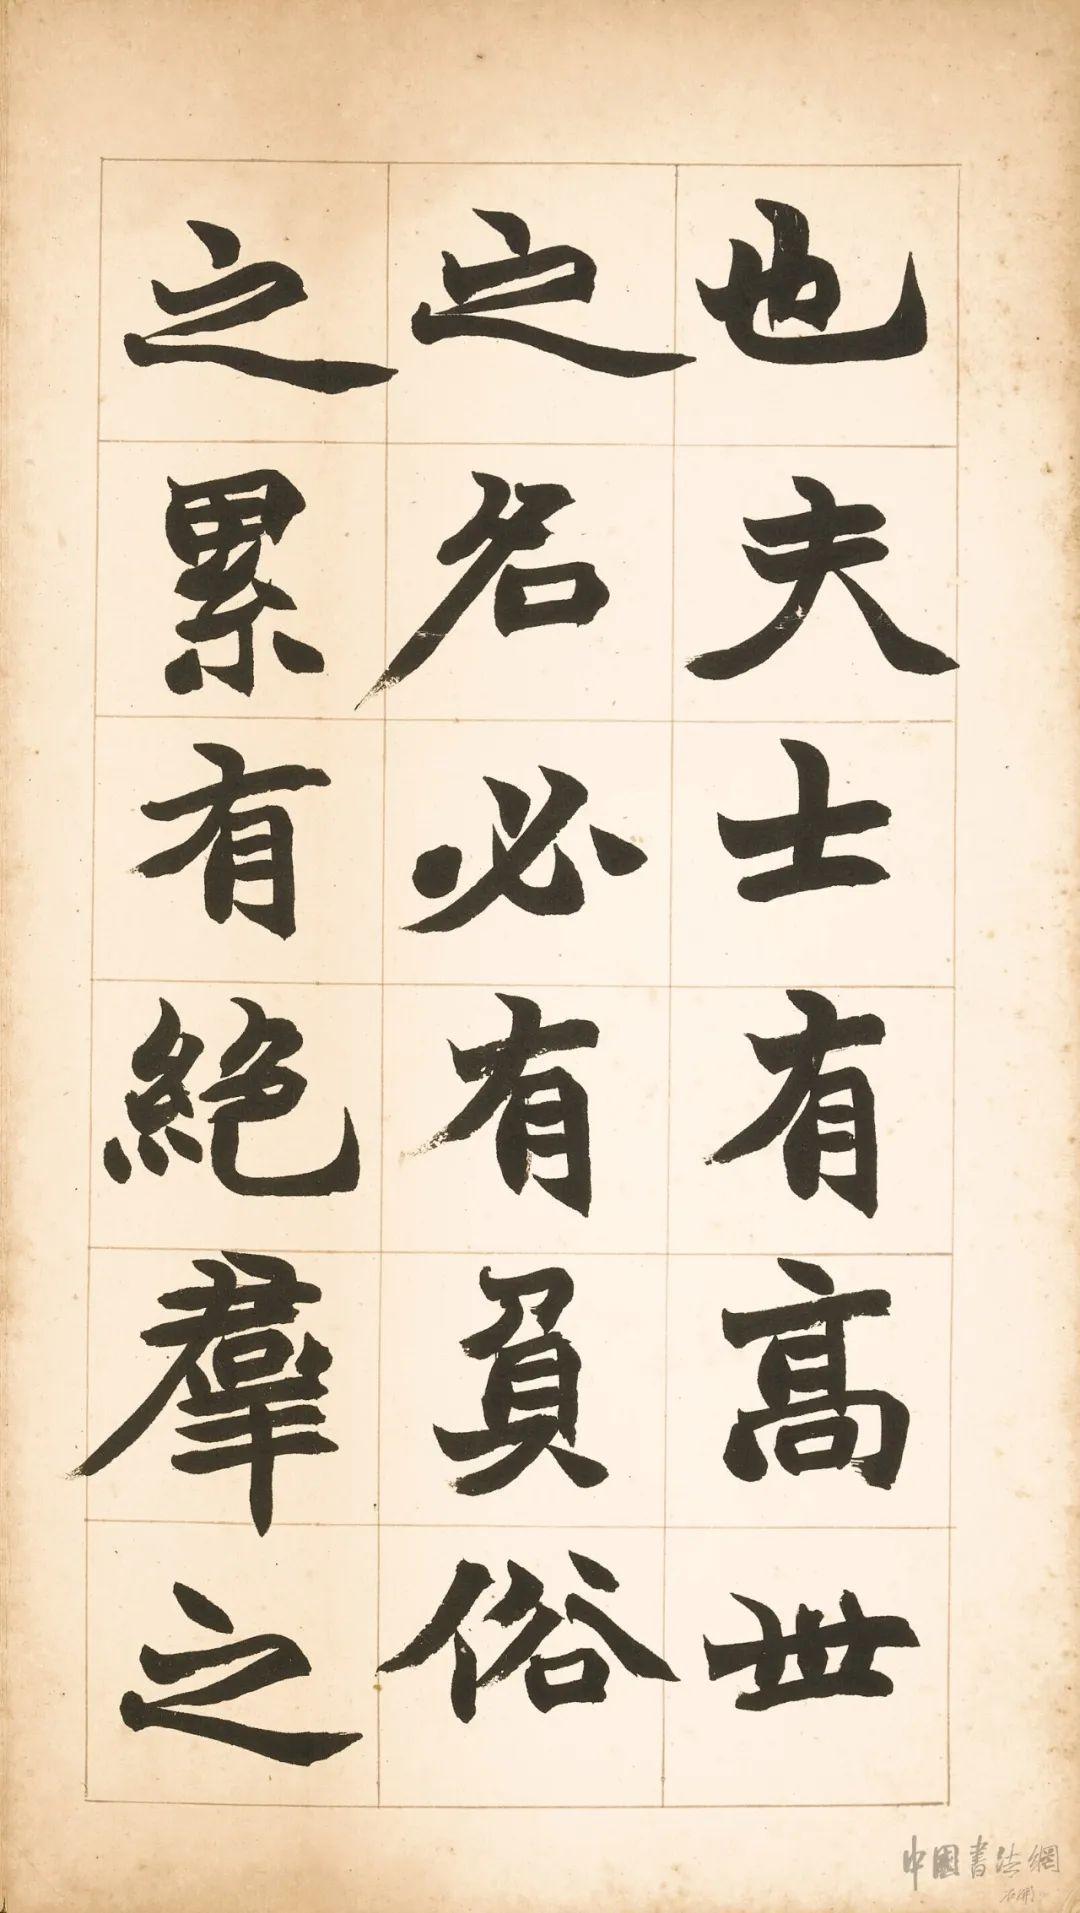 也夫士有高世
之名必有負俗
之累有絕羣之
中國書法網